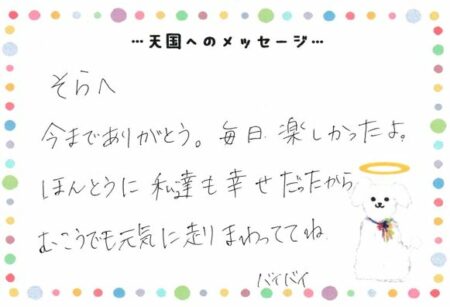 …天国へのメッセージ…
そらへ
今までありがとう。毎日楽しかったよ。
ほんとうに私達も幸せだったから
むこうでも元気に走りまわっててね
バイバイ